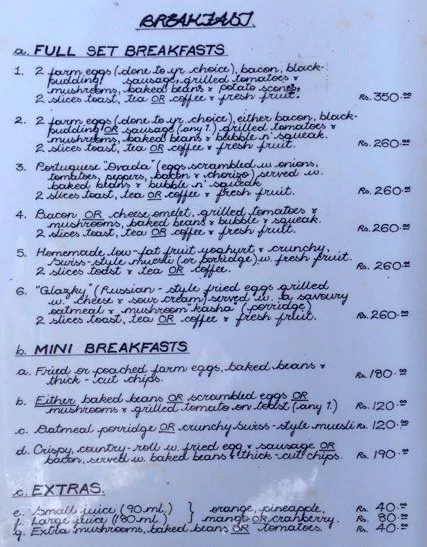 BREAKFAST.
a. FULL SET BREAKFASTS
1. 2 farm eggs (done to yr. choice), bacon, black-
pudding/ sausage, grilled tomatoes &
mushrooms, baked beans & potato scones,
2 slices toast, tea OR coffee & fresh fruit. Rs. 350.00
2. 2 farm eggs (done to yr. choice), either bacon, black-
pudding OR sausage (any 1.) grilled tomatoes &
mushrooms, baked beans & bubble n' squeak.
2 slices toast, tea OR coffee & fresh fruit. Rs. 260.00
3. Portuguese "Ovada" (eggs scrambled w. onions,
tomatoes, peppers, bacon & chorizo) served w.
baked beans & bubble n' squeak
2 slices toast, tea OR coffee & fresh fruit. Rs. 260.00
4. Bacon OR cheese omelet, grilled tomatoes &
mushrooms, baked beans & bubble & squeak.
2 slices toast, tea OR coffee & fresh fruit. Rs. 260.00
5. Homemade low-fat fruit yoghurt & crunchy,
swiss-style muesli (or porridge) w. fresh fruit.
2 slices toast & tea OR coffee. Rs. 260.00
6. "Glazky" (Russian-style fried eggs grilled
w. cheese & sour cream) served w. a savoury
oatmeal & mushroom kasha (porridge)
2 slices toast, tea OR coffee & fresh fruit. Rs. 260.00
b. MINI BREAKFASTS
a. Fried or poached farm eggs, baked beans &
thick-cut chips. Rs. 180.00
b. Either baked beans OR scrambled eggs OR
mushrooms & grilled tomato on toast (any 1.) Rs. 120.00
c. Oatmeal porridge OR crunchy swiss-style muesli Rs. 120.00
d. Crispy, country-roll w. fried egg & sausage OR
bacon, served w. baked beans & thick-cut chips. Rs. 190.00
c. EXTRAS.
e. Small juice (90 ml.) } orange, pineapple, Rs. 40.00
f. Large juice (180 ml.) } mango OR cranberry. Rs. 80.00
g. Extra mushrooms, baked beans OR tomatoes. Rs. 40.00